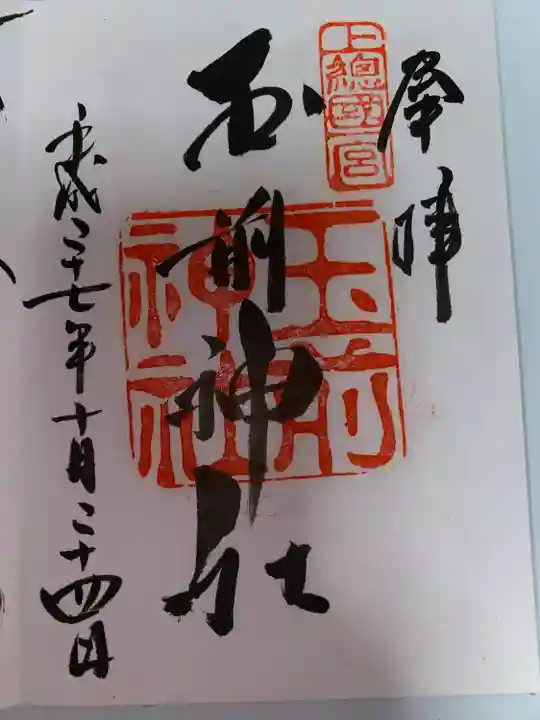 奉拝
上總國宮
玉前神社
玉前神社
平成二十七年十月二十四日